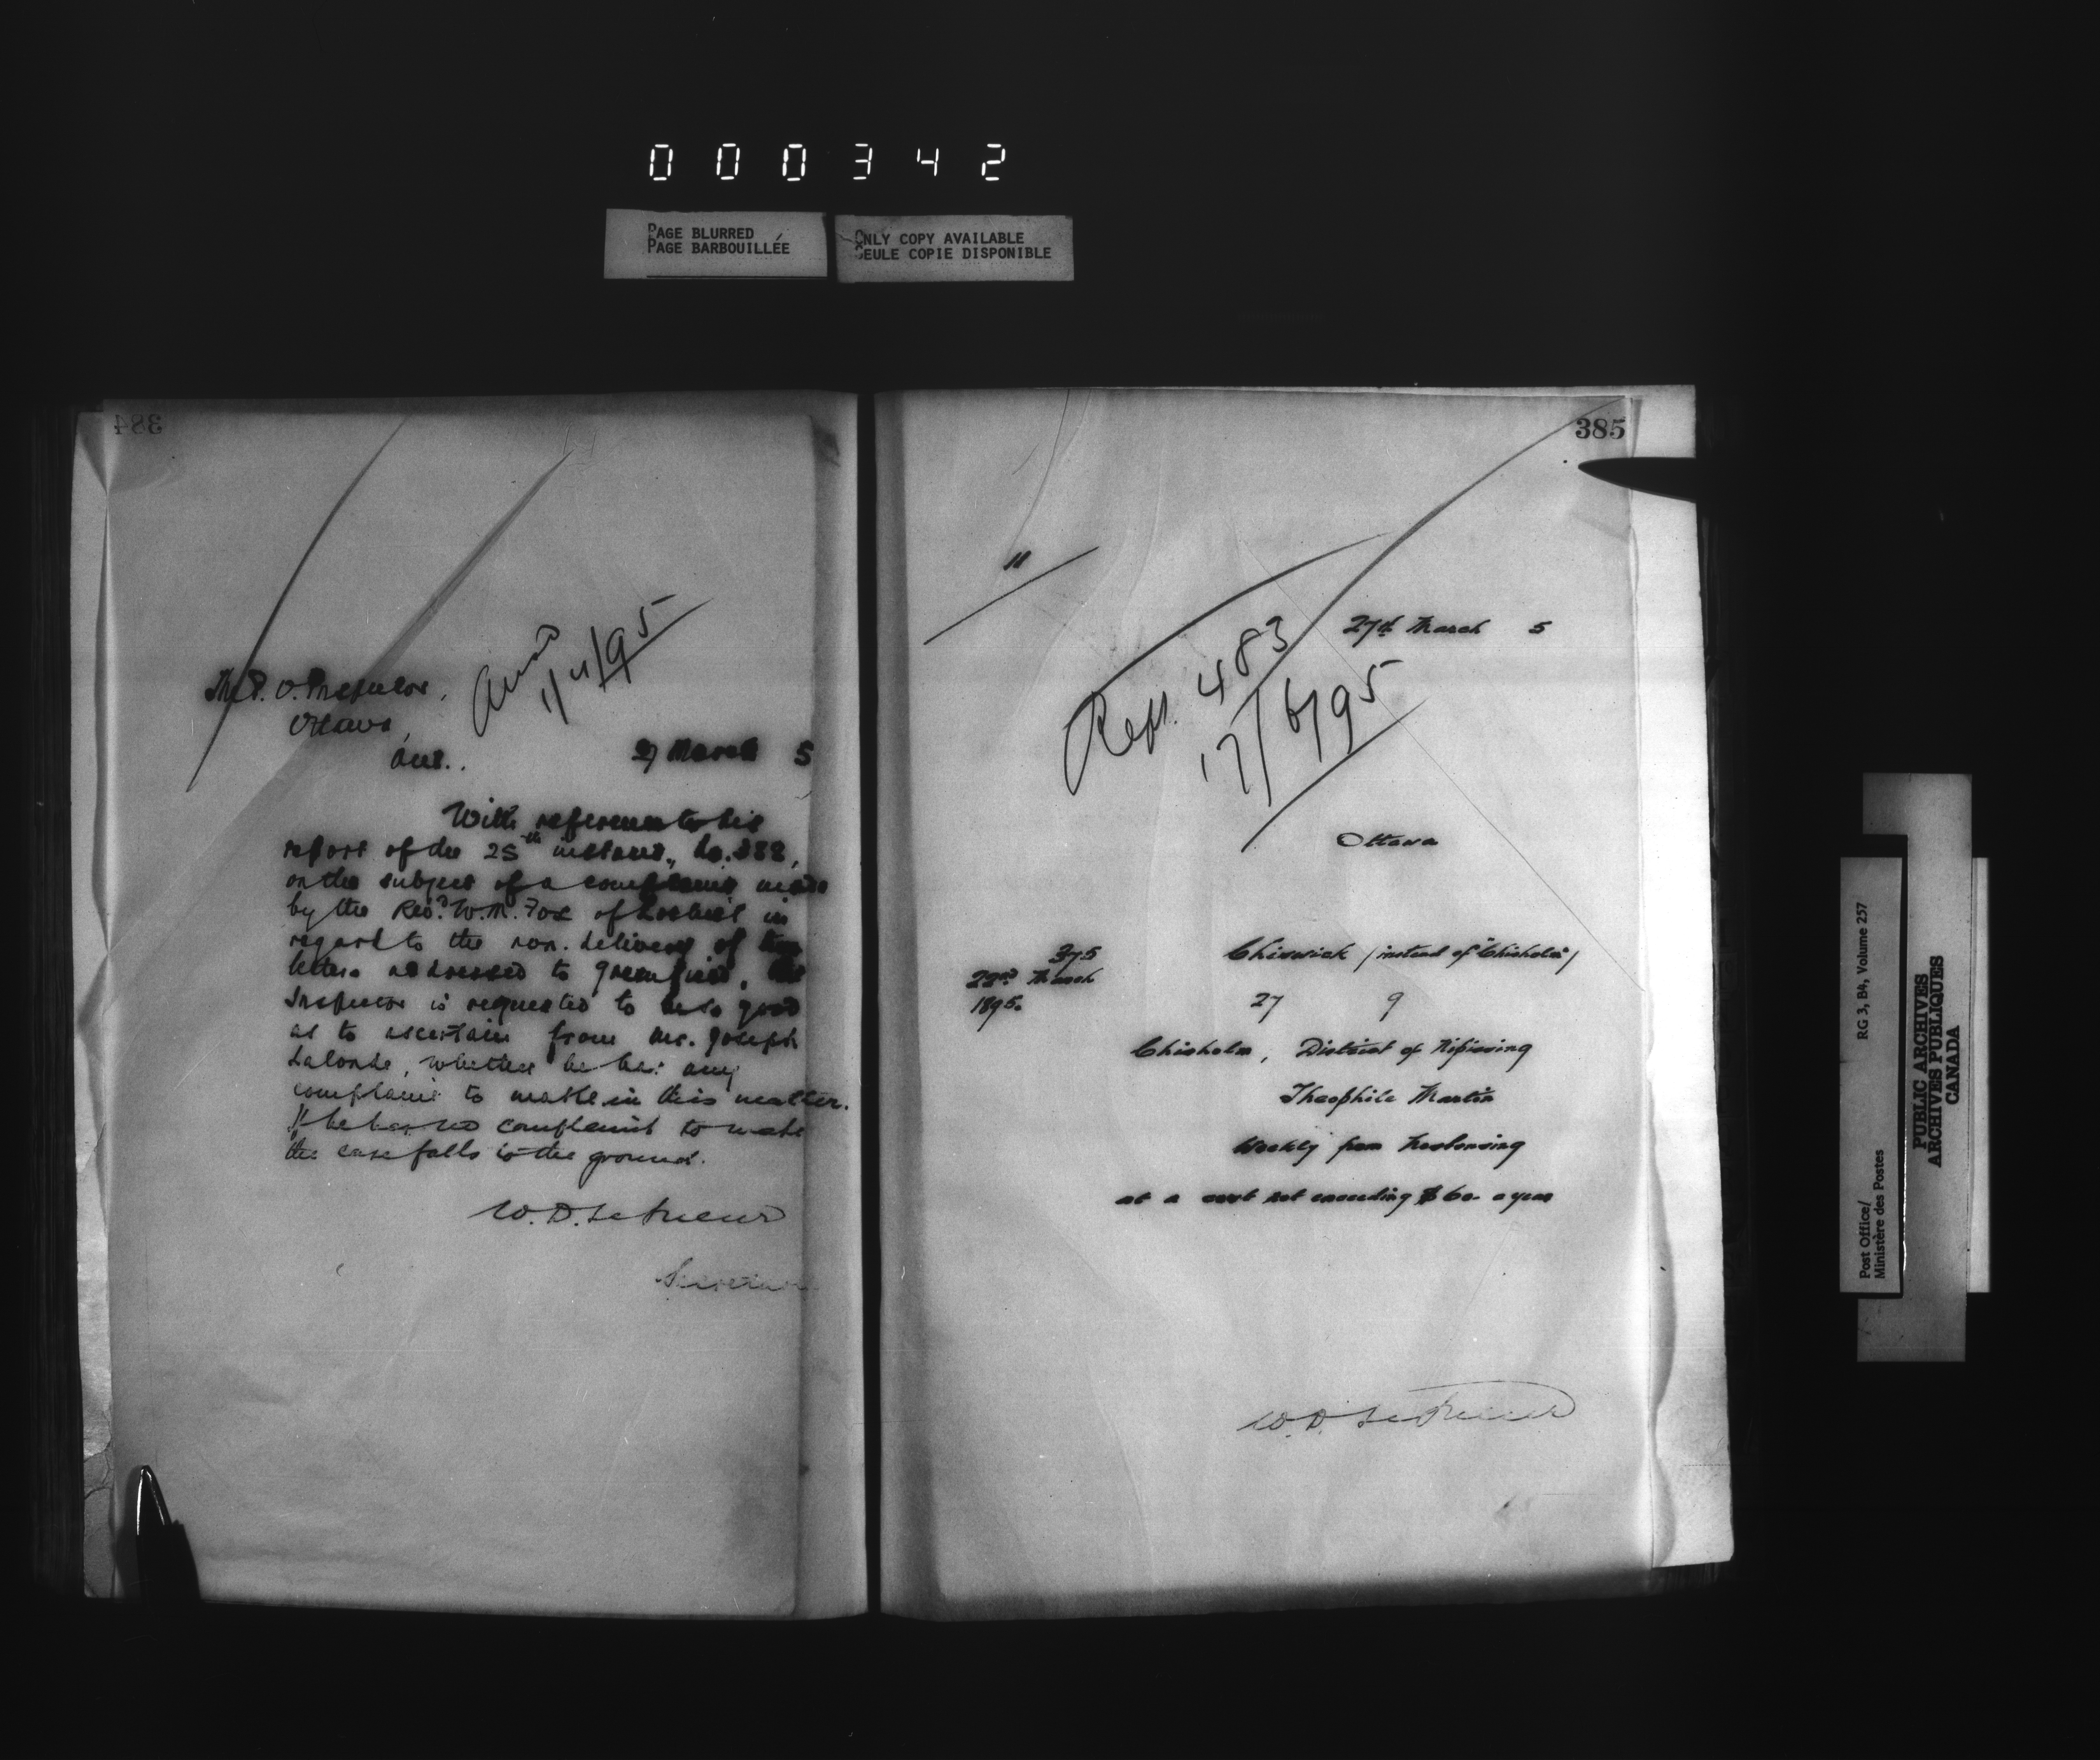 000342
PAGE BLURRED
PAGE BARBOUILLÉE
ONLY COPY AVAILABLE
SEULE COPIE DISPONIBLE
384
Ansd
1/4/95
The P. O. Inspector,
Ottawa,
Ont..
27 March 5
With reference to his
report of the 25th instant, No. 388,
on the subject of a complaint made
by the Revd. W. M. Fox of Lochiel in
regard to the non-delivery of
letters addressed to Greenfield, the
Inspector is requested to be so good
as to ascertain from Mr. Joseph
Lalonde, whether he has any
complaint to make in this matter.
If he has no complaint to make
the case falls to the ground.
W. D. LeSueur
Secretary
385
11
27th March 5
Rept. 483
17/6/95
Ottawa
375
22nd March
1895.
Chiswick (instead of "Chisholm")
27 9
Chisholm, District of Nipissing
Theophile Martin
Weekly from Nosbonsing
at a cost not exceeding $60- a year
W. D. LeSueur
Post Office/
Ministère des Postes
RG 3, B4, Volume 257
PUBLIC ARCHIVES
ARCHIVES PUBLIQUES
CANADA